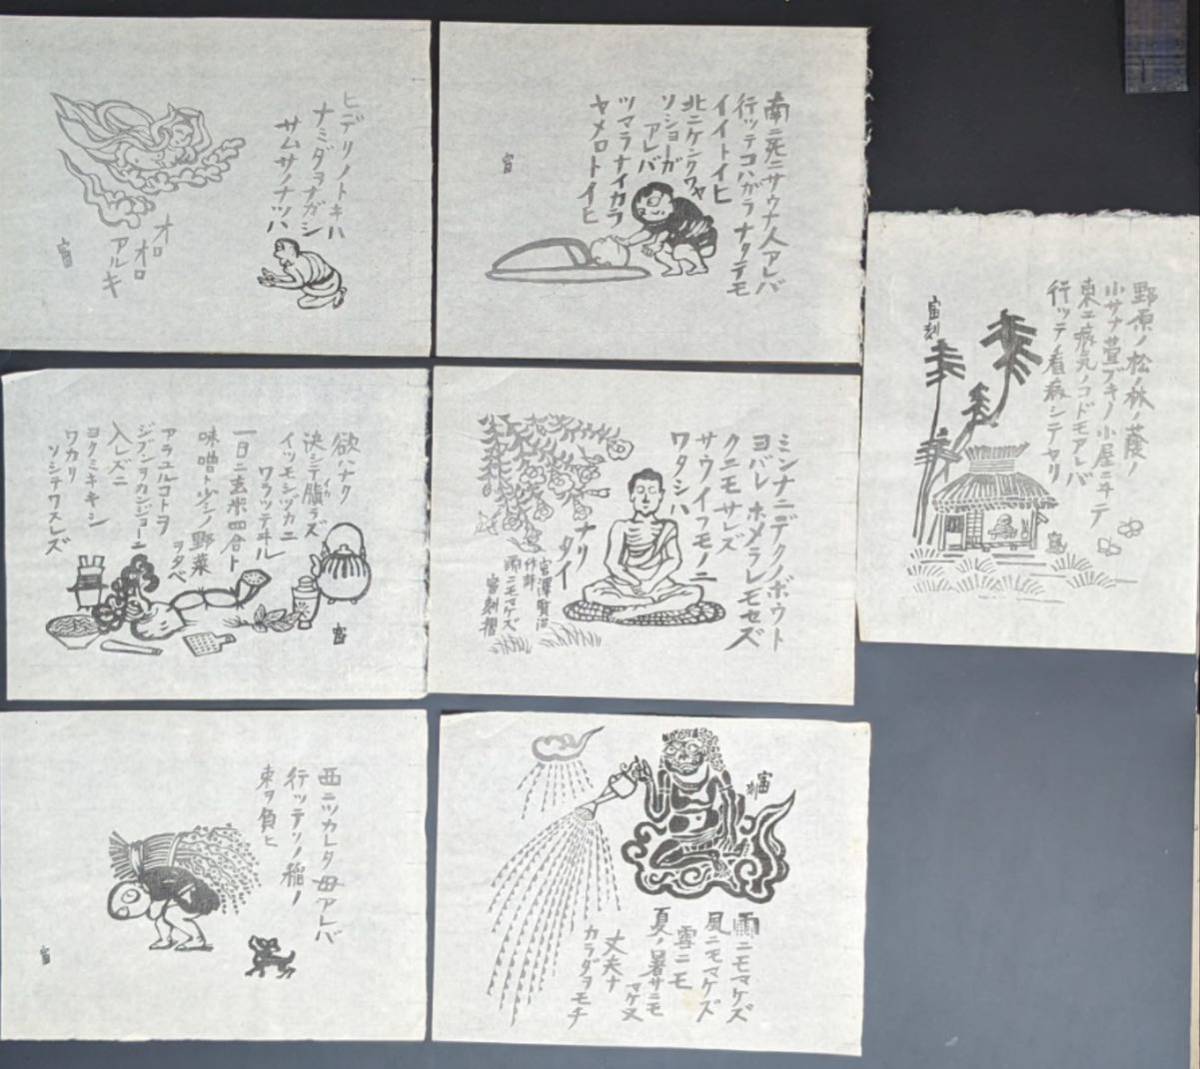 ヒデリノトキハ
ナミダヲナガシ
サムサノナツハ
オロ
オロ
アルキ
富
南ニ死ニサウナ人アレバ
行ッテコハガラナクテモ
イイトイヒ
北ニケンクワヤ
ソショーガ
アレバ
ツマラナイカラ
ヤメロトイヒ
富
野原ノ松ノ林ノ蔭ノ
小サナ萱ブキノ小屋ニヰテ
東ニ病気ノコドモアレバ
行ッテ看病シテヤリ
富刻
欲ハナク
決シテ瞋ラズ
イカ
イツモシヅカニ
ワラッテヰル
一日ニ玄米四合ト
味噌ト少シノ野菜
ヲタベ
アラユルコトヲ
ジブンヲカンジョーニ
入レズニ
ヨクミキキシ
ワカリ
ソシテワスレズ
富
ミンナニデクノボウト
ヨバレ ホメラレモセズ
クニモサレズ
サウイフモノニ
ワタシハ
ナリ
タイ
宮澤賢治
作詩
雨ニモマケズ
富刻摺
西ニツカレタ母アレバ
行ッテソノ稲ノ
束ヲ負ヒ
富
富刻
雨ニモマケズ
風ニモマケズ
雪ニモ
夏ノ暑サニモ
マケヌ
丈夫ナ
カラダヲモチ